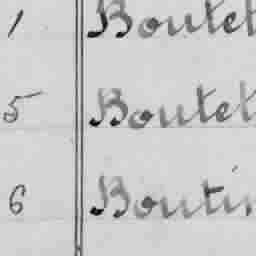 1 Boutet
5 Boutet
6 Boutin